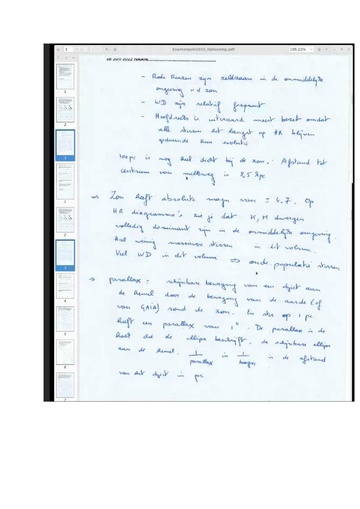 - Rode Reuzen zijn zeldzaam in de onmiddellijke
omgeving v d zon
- WD zijn relatief frequent
- Hoofdreeks is uiteraard meest bezet omdat
alle sterren het langst op HR blijven
gedurende hun evolutie
100 pc is nog heel dicht bij de zon. Afstand tot
centrum van melkweg is 8,5 kpc
⇒ Zon heeft absolute magn van = 4.7. Op
HR diagramma's zie je dat K, M dwergen
volledig dominant zijn in de onmiddellijke omgeving
Heel weinig massieve sterren in dit volume.
Veel WD in dit volume ⇒ oude populatie sterren
→ parallax = schijnbare beweging van een object aan
de hemel door de beweging van de aarde (of
van GAIA) rond de zon. Een ster op 1 pc
heeft een parallax van 1". De parallax is de
hoek die de ellips beschrijft. de schijnbare ellips
aan de hemel. 1/parallax in 1/boogsec is de afstand
van dit object in pc